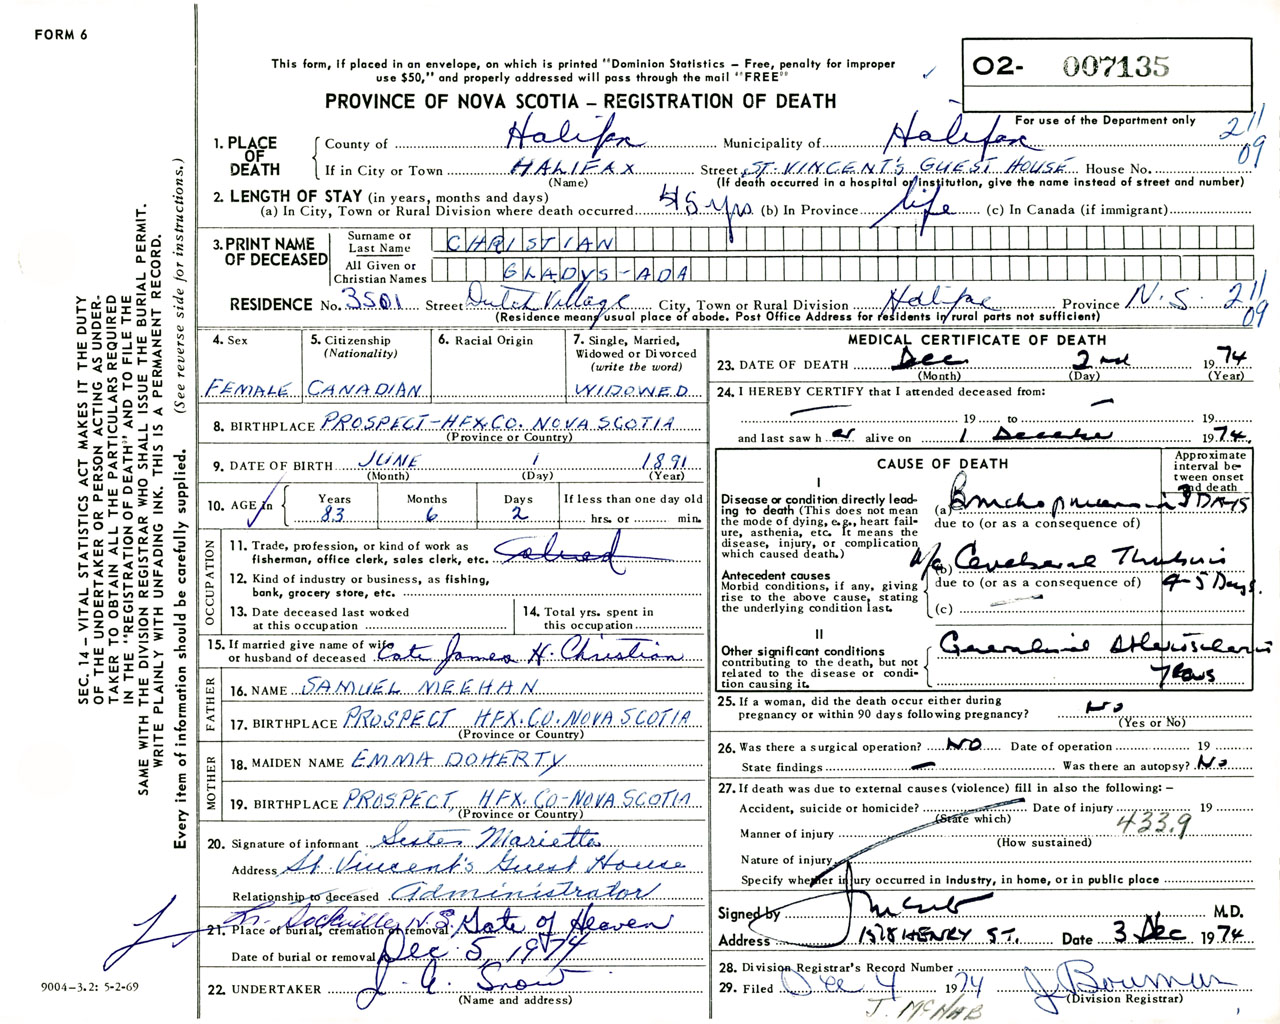 FORM 6
This form, if placed in an envelope, on which is printed "Dominion Statistics – Free, penalty for improper
use $50," and properly addressed will pass through the mail "FREE"
O2- 007135
PROVINCE OF NOVA SCOTIA – REGISTRATION OF DEATH
For use of the Department only
211
09
1. PLACE OF DEATH
County of Halifax Municipality of Halifax
If in City or Town HALIFAX Street ST. VINCENT'S GUEST HOUSE House No.
(Name) (If death occurred in a hospital or institution, give the name instead of street and number)
2. LENGTH OF STAY (in years, months and days)
(a) In City, Town or Rural Division where death occurred 45 yrs (b) In Province life (c) In Canada (if immigrant)
3. PRINT NAME OF DECEASED
Surname or Last Name CHRISTIAN
All Given or Christian Names GLADYS-ADA
RESIDENCE No. 3501 Street Dutch Village City, Town or Rural Division Halifax Province N.S. 211
09
(Residence means usual place of abode. Post Office Address for residents in rural parts not sufficient)
4. Sex FEMALE
5. Citizenship (Nationality) CANADIAN
6. Racial Origin
7. Single, Married, Widowed or Divorced (write the word) WIDOWED
8. BIRTHPLACE PROSPECT-HFX.CO. NOVA SCOTIA
(Province or Country)
9. DATE OF BIRTH JUNE 1 1891
(Month) (Day) (Year)
10. AGE in Years 83 Months 6 Days 2 If less than one day old hrs. or min.
OCCUPATION
11. Trade, profession, or kind of work as
fisherman, office clerk, sales clerk, etc.
12. Kind of industry or business, as fishing,
bank, grocery store, etc.
13. Date deceased last worked
at this occupation
14. Total yrs. spent in
this occupation
15. If married give name of wife
or husband of deceased Late James H. Christian
FATHER
16. NAME SAMUEL MEEHAN
17. BIRTHPLACE PROSPECT HFX.CO. NOVA SCOTIA
(Province or Country)
MOTHER
18. MAIDEN NAME EMMA DOHERTY
19. BIRTHPLACE PROSPECT, HFX. CO-NOVA SCOTIA
(Province or Country)
20. Signature of informant Sister Marietta
Address St. Vincent's Guest House
Relationship to deceased Administrator
Lr. Sackville N.S.
21. Place of burial, cremation or removal Gate of Heaven
Date of burial or removal Dec 5, 1974
22. UNDERTAKER J. A. Snow
(Name and address)
MEDICAL CERTIFICATE OF DEATH
23. DATE OF DEATH Dec 2nd 1974
(Month) (Day) (Year)
24. I HEREBY CERTIFY that I attended deceased from:
19 to 19
and last saw her alive on 1 December 1974.
CAUSE OF DEATH
Approximate interval between onset and death
I
Disease or condition directly leading to death (This does not mean the mode of dying, e.g., heart failure, asthenia, etc. It means the disease, injury, or complication which caused death.)
(a) Bronchopneumonia 3 DAYS
due to (or as a consequence of)
Antecedent causes
Morbid conditions, if any, giving rise to the above cause, stating the underlying condition last.
(b) Cerebral Thrombosis 4-5 Days.
due to (or as a consequence of)
(c)
II
Other significant conditions
contributing to the death, but not related to the disease or condition causing it.
Generalized Atherosclerosis
Years
25. If a woman, did the death occur either during
pregnancy or within 90 days following pregnancy? No
(Yes or No)
26. Was there a surgical operation? NO Date of operation 19
State findings – Was there an autopsy? No
27. If death was due to external causes (violence) fill in also the following: –
Accident, suicide or homicide? Date of injury 19
(State which)
433.9
Manner of injury
(How sustained)
Nature of injury
Specify whether injury occurred in industry, in home, or in public place
Signed by M.D.
Address 1578 HENRY ST. Date 3 Dec 1974
28. Division Registrar's Record Number
29. Filed Dec 4 1974 J Bowman
(Division Registrar)
J. McNAB
SEC. 14 – VITAL STATISTICS ACT MAKES IT THE DUTY
OF THE UNDERTAKER OR PERSON ACTING AS UNDER-
TAKER TO OBTAIN ALL THE PARTICULARS REQUIRED
IN THE "REGISTRATION OF DEATH" AND TO FILE THE
SAME WITH THE DIVISION REGISTRAR WHO SHALL ISSUE THE BURIAL PERMIT.
WRITE PLAINLY WITH UNFADING INK. THIS IS A PERMANENT RECORD.
Every item of information should be carefully supplied. (See reverse side for instructions.)
9004-3.2: 5-2-69